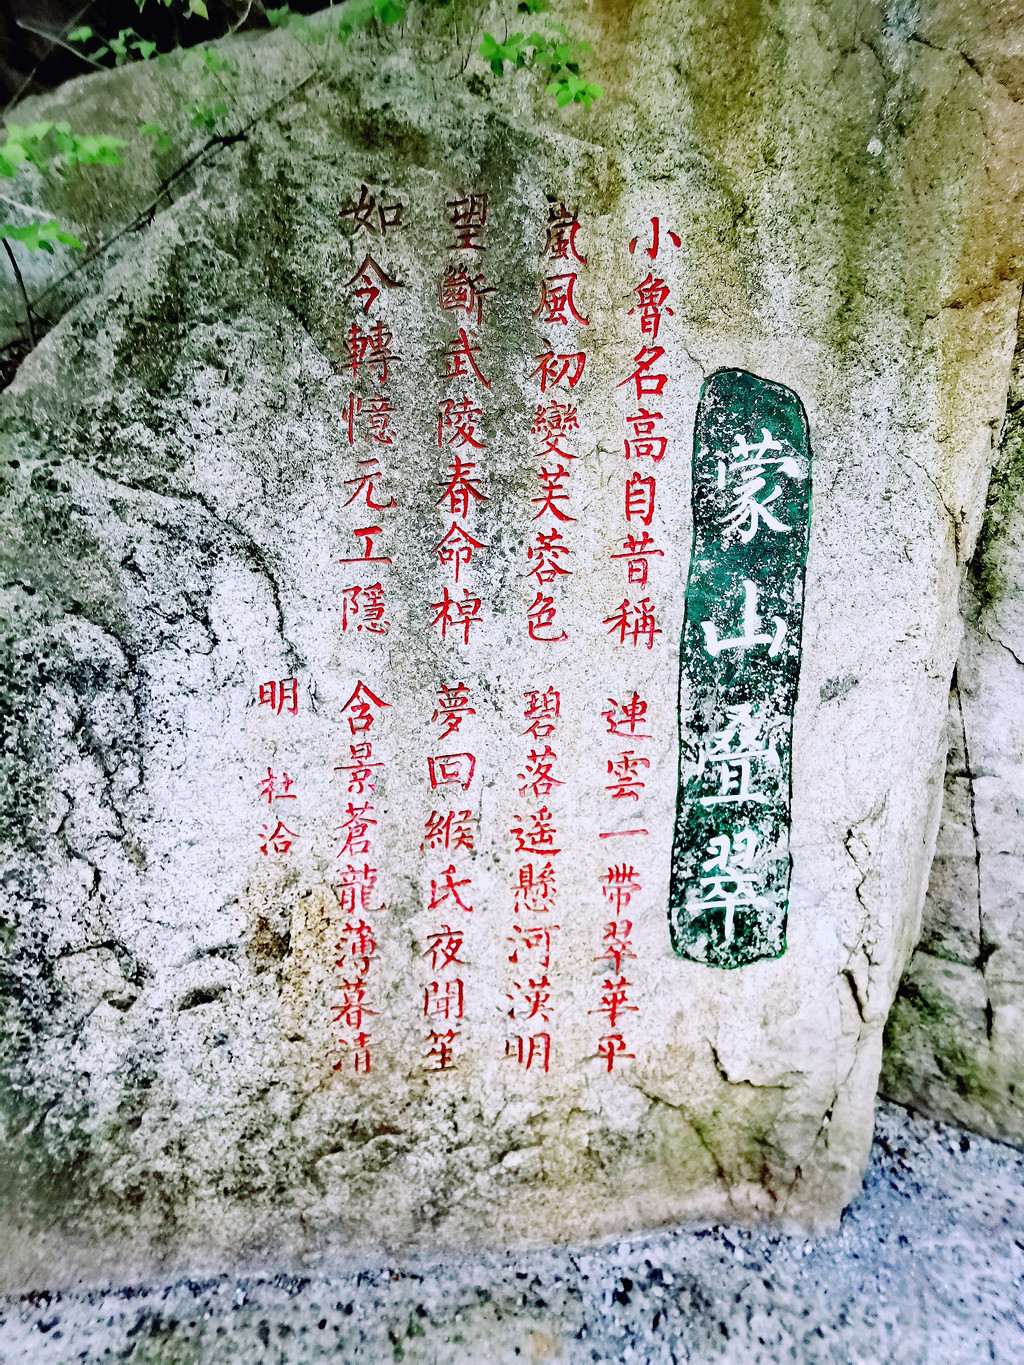 蒙山叠翠
小魯名高自昔稱 連雲一帶翠華平
嵐風初變芙蓉色 碧落遥懸河漢明
望斷武陵春命棹 夢回緱氏夜聞笙
如今轉憶元工隱 含景蒼龍薄暮清
明 杜洽